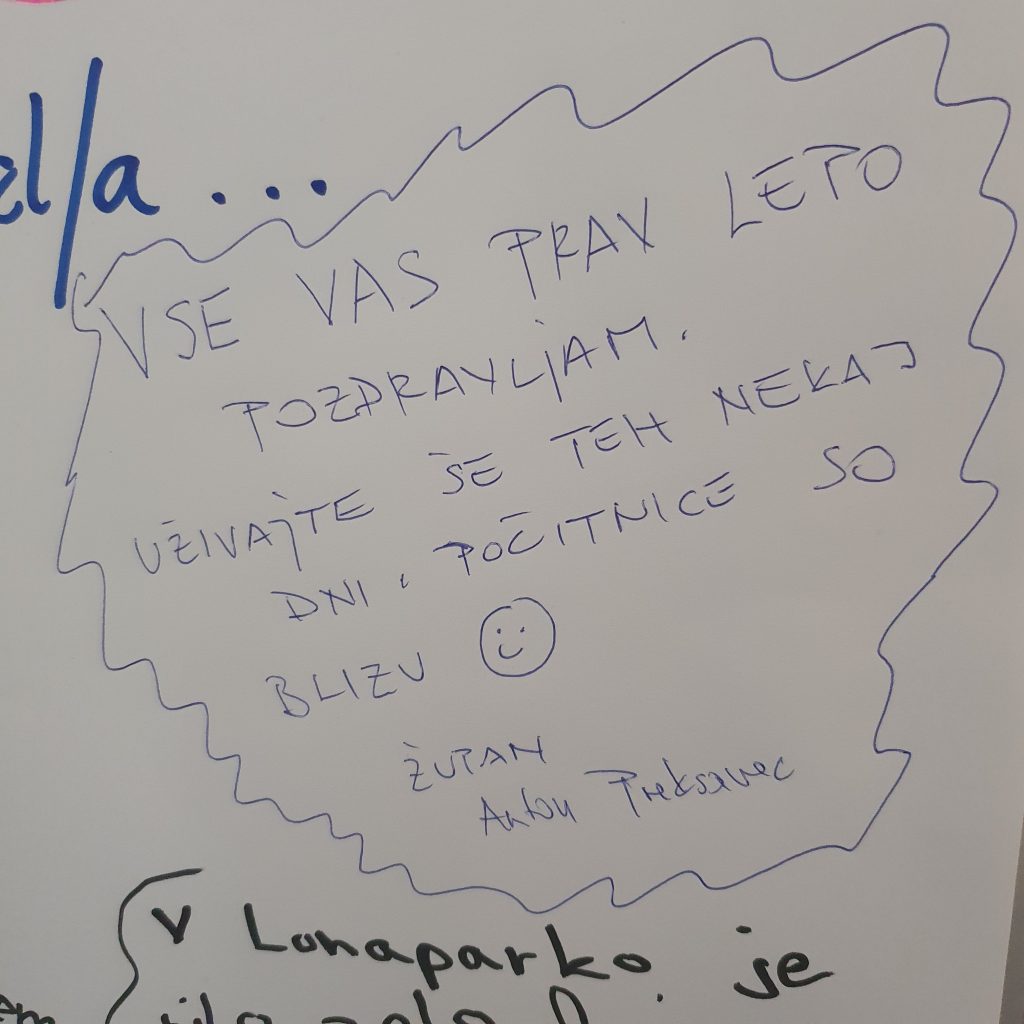 zl/a ...
VSE VAS PRAV LETO
POZDRAVLJAM.
UŽIVAJTE ŠE TEH NEKAJ
DNI. POČITNICE SO
BLIZU ☺
ŽUPAN
Anton Preksavec
V Lunaparko. je